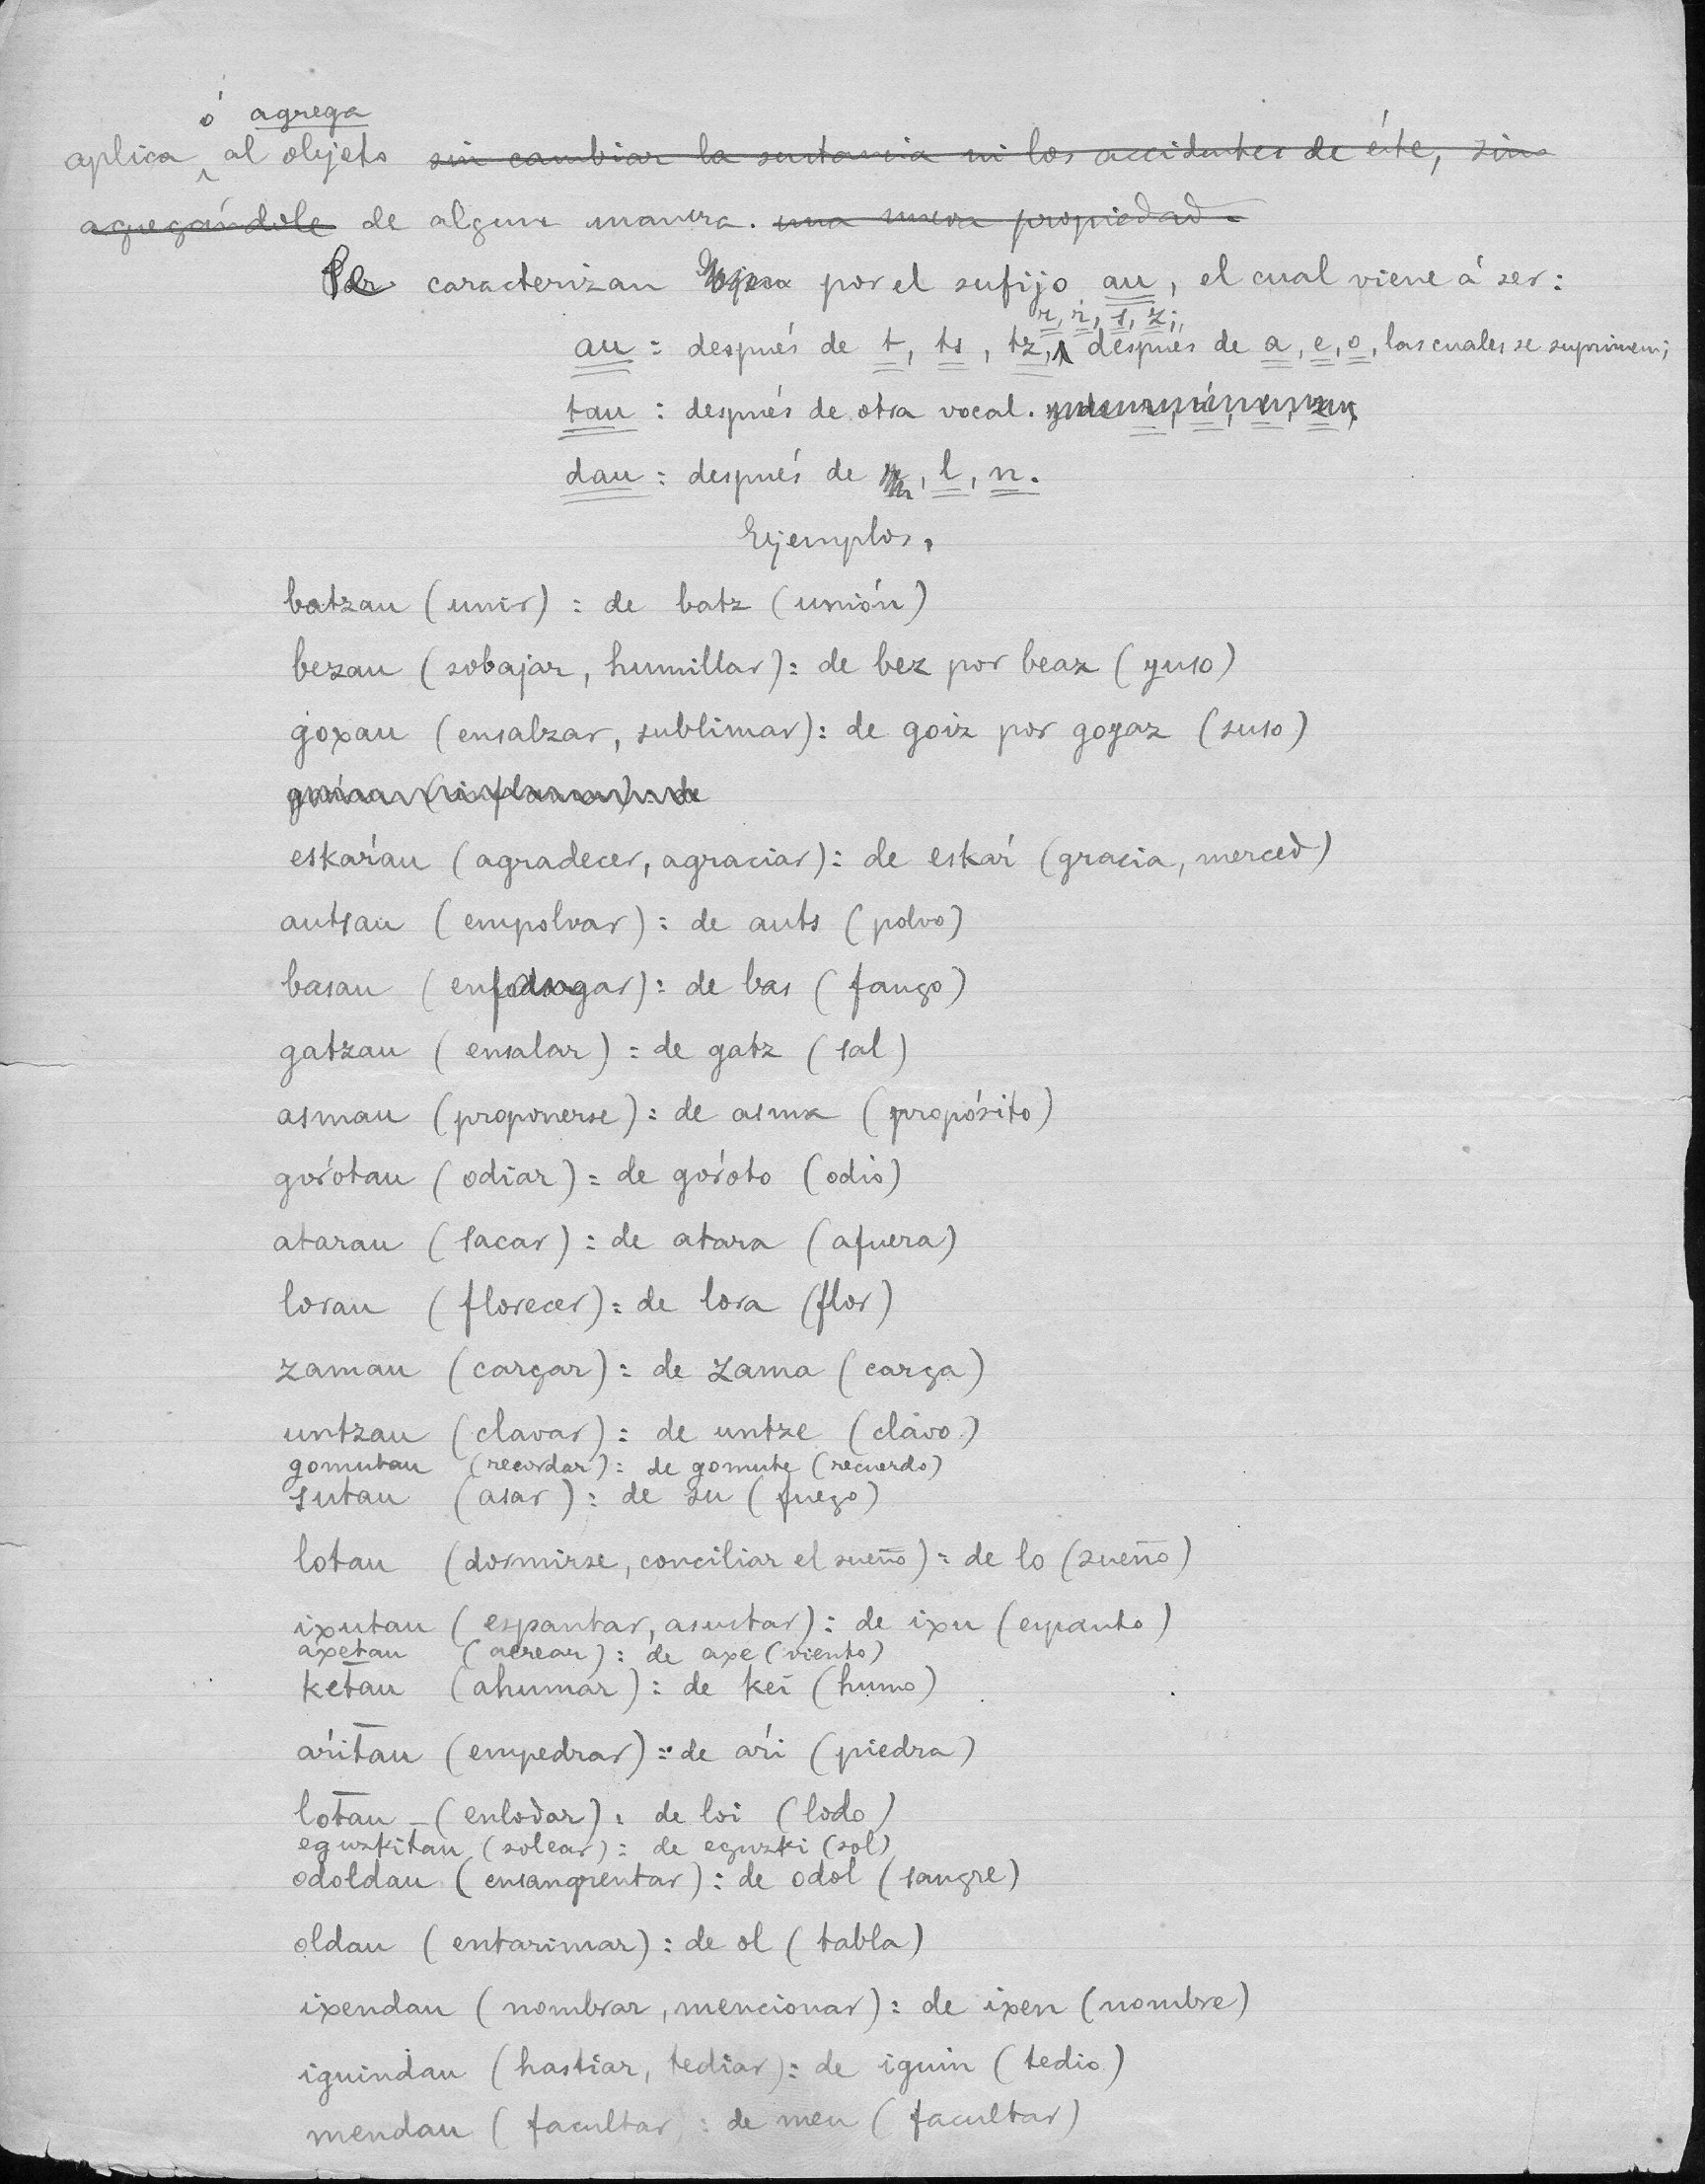 ó agrega
aplica al objeto sin cambiar la sustancia ni los accidentes de éste, sino
agregándole de alguna manera. una nueva propiedad.
Se caracterizan por el sufijo au, el cual viene á ser:
r, ŕ, s, z;
au : después de t, ts, tz, después de a, e, o, las cuales se suprimen;
tau : después de otra vocal.
dau : después de , l, n.
Ejemplos.
batzau (unir) : de batz (unión)
bezau (sobajar, humillar) : de bez por beaz (yuso)
goxau (ensalzar, sublimar) : de goiz por goyaz (suso)
eskaŕau (agradecer, agraciar) : de eskaŕ (gracia, merced)
autsau (empolvar) : de auts (polvo)
basau (enfangar) : de bas (fango)
gatzau (ensalar) : de gatz (sal)
asmau (proponerse) : de asma (propósito)
goŕotau (odiar) : de goŕoto (odio)
atarau (sacar) : de atara (afuera)
lorau (florecer) : de lora (flor)
zamau (cargar) : de zama (carga)
untzau (clavar) : de untze (clavo)
gomutau (recordar) : de gomute (recuerdo)
sutau (asar) : de su (fuego)
lotau (dormirse, conciliar el sueño) : de lo (sueño)
ixutau (espantar, asustar) : de ixu (espanto)
axetau (aerear) : de axe (viento)
ket̄au (ahumar) : de kei (humo)
aŕit̄au (empedrar) : de aŕi (piedra)
lot̄au (enlodar) : de loi (lodo)
eguzkit̄au (solear) : de eguzki (sol)
odoldau (ensangrentar) : de odol (sangre)
oldau (entarimar) : de ol (tabla)
ixendau (nombrar, mencionar) : de ixen (nombre)
iguindau (hastiar, tediar) : de iguin (tedio)
mendau (facultar) : de men (facultar)